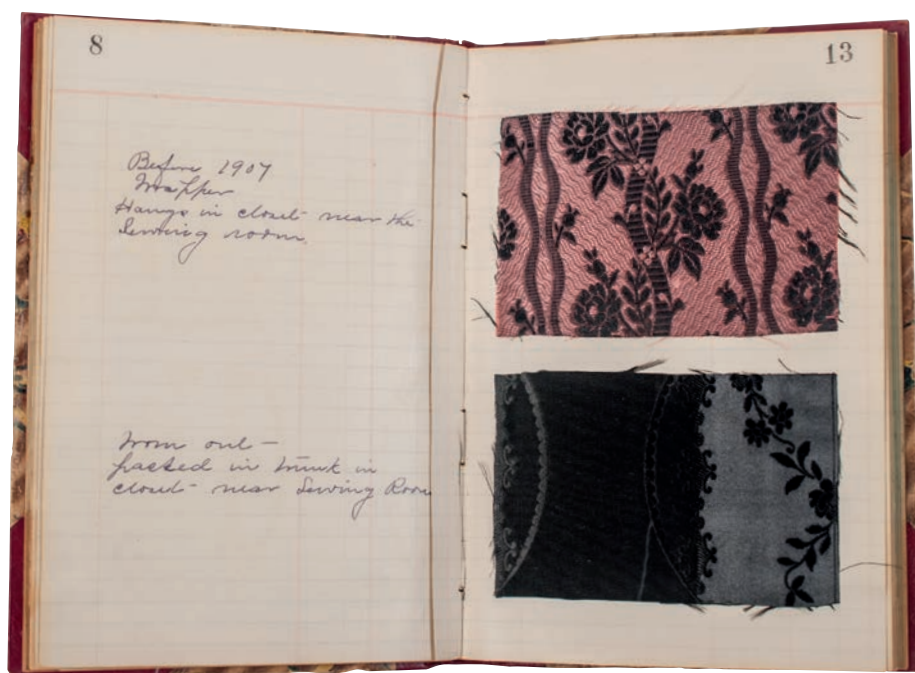 8
Before 1907
Wrapper
Hangs in closet near the
Sewing room.
Worn out —
packed in trunk in
closet near Sewing Room
13